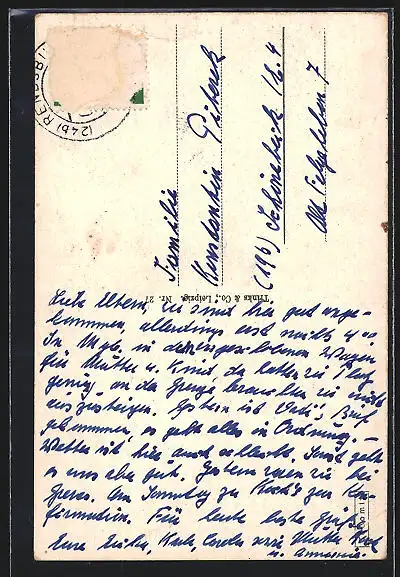 (24b) REIN
Familie
Konstantin
(19b) Schönebeck /E. 4
Alt Felgeleben 7
Trinks & Co., Leipzig, Nr. 27
Liebe Eltern, sind hier gut ange-
kommen, allerdings erst nachts 4 00
In Mgb. in den eingeschobenen Wagen
für Mutter u. Kind, da hatten wir Platz
genug, an der Grenze brauchten wir nicht
auszusteigen. Gestern ist Brief
gekommen, es geht alles in Ordnung. –
Wetter ist hier auch schlecht. Sonst geht
es uns aber gut. Gestern waren wir bei
Am Sonntag zu Koch's zur Kon-
firmation. Für heute beste Grüße
Eure Mutter
u. Annemie.